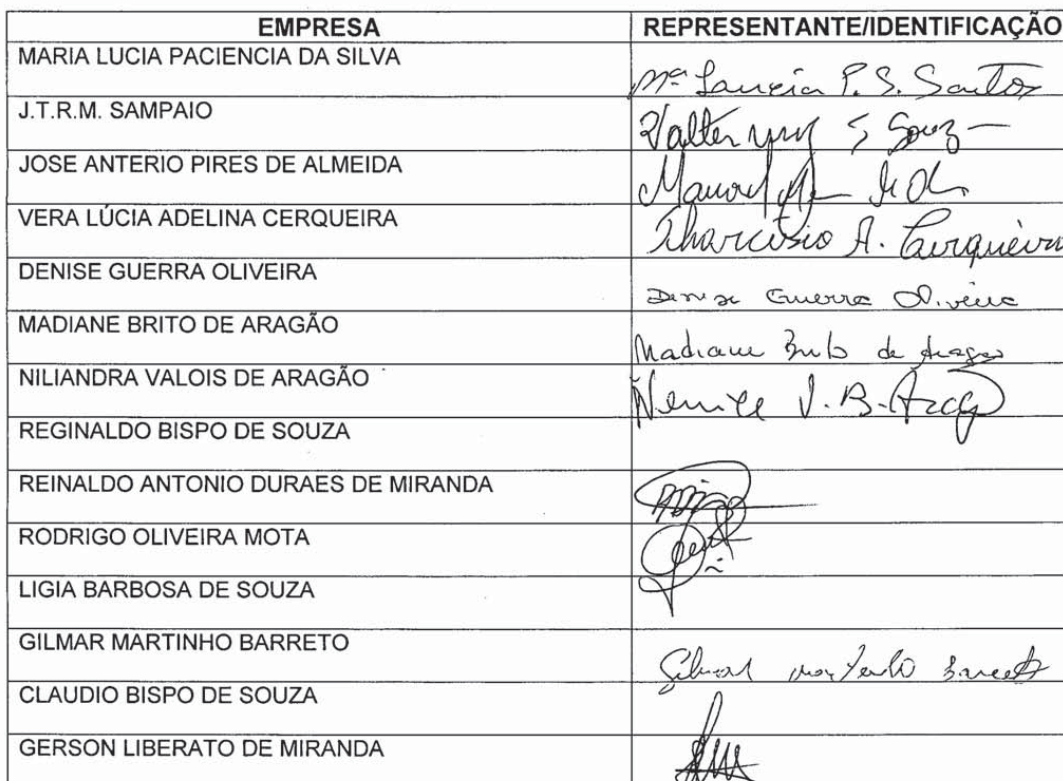 EMPRESA REPRESENTANTE/IDENTIFICAÇÃO
MARIA LUCIA PACIENCIA DA SILVA Mª Laucia P. S. Santos
J.T.R.M. SAMPAIO Valter S Souz
JOSE ANTERIO PIRES DE ALMEIDA Manoel
VERA LÚCIA ADELINA CERQUEIRA Tharcisio A. Cerqueira
DENISE GUERRA OLIVEIRA Denise Guerra Oliveira
MADIANE BRITO DE ARAGÃO Madiane Brito de Aragão
NILIANDRA VALOIS DE ARAGÃO V. B. Arag
REGINALDO BISPO DE SOUZA
REINALDO ANTONIO DURAES DE MIRANDA
RODRIGO OLIVEIRA MOTA
LIGIA BARBOSA DE SOUZA
GILMAR MARTINHO BARRETO Gilmar Martinho Barreto
CLAUDIO BISPO DE SOUZA
GERSON LIBERATO DE MIRANDA